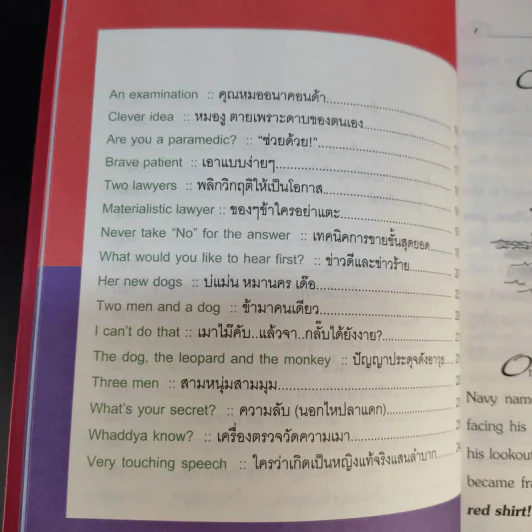 An examination :: คุณหมออนาคอนด้า
Clever idea :: หมองู ตายเพราะดาบของตนเอง
Are you a paramedic? :: "ช่วยด้วย!"
Brave patient :: เอาแบบง่ายๆ
Two lawyers :: พลิกวิกฤติให้เป็นโอกาส
Materialistic lawyer :: ของๆข้าใครอย่าแตะ
Never take "No" for the answer :: เทคนิคการขายขั้นสุดยอด
What would you like to hear first? :: ข่าวดีและข่าวร้าย
Her new dogs :: บ่แม่น หมานคร เด้อ
Two men and a dog :: ข้ามาคนเดียว
I can't do that :: เมาไม๊คับ..แล้วจา..กลั๊บได้ยังงาย?
The dog, the leopard and the monkey :: ปัญญาประดุจดังอาวุธ
Three men :: สามหนุ่มสามมุม
What's your secret? :: ความลับ (นอกไหปลาแดก)
Whaddya know? :: เครื่องตรวจวัดความเมา
Very touching speech :: ใครว่าเกิดเป็นหญิงแท้จริงแสนลำบาก
Navy nam
facing his
his lookou
became fra
red shirt!